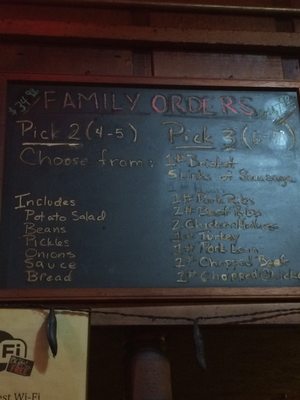 FAMILY ORDERS
Pick 2 (4-5) Pick 3
Choose from: 1# Brisket
5 Links of Sausage
Includes
Potato Salad
Beans
Pickles
Onions
Sauce
Bread
1# Pork Ribs
2# Beef Ribs
2 Chicken Halves
1# Turkey
1# Pork Loin
1# Chopped Beef
1# Chopped Chicken
Fi
FREE
Wi-Fi